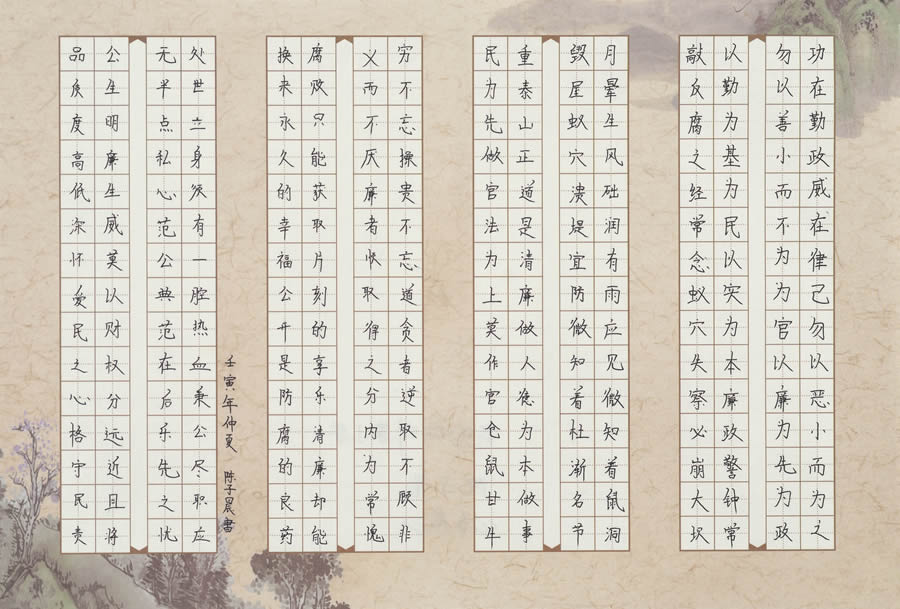 功在勤政威在律己勿以恶小而为之
勿以善小而不为为官以廉为先为政
以勤为基为民以实为本廉政警钟常
敲反腐之经常念蚁穴失察必崩大坝
月晕生风础润有雨应见微知着鼠洞
毁屋蚁穴溃堤宜防微知着杜渐名节
重泰山正道是清廉做人德为本做事
民为先做官法为上莫作官仓鼠甘牛
穷不忘操贵不忘道贪者逆取不顾非
义而不厌廉者快取得之分内为常愧
腐败只能获取片刻的享乐清廉却能
换来永久的幸福公开是防腐的良药
处世立身须有一腔热血秉公尽职应
无半点私心范公典范在后乐先之忧
公生明廉生威莫以财权分远近且将
品质度高低深怀爱民之心恪守民责
壬寅年仲夏 陈子晨书